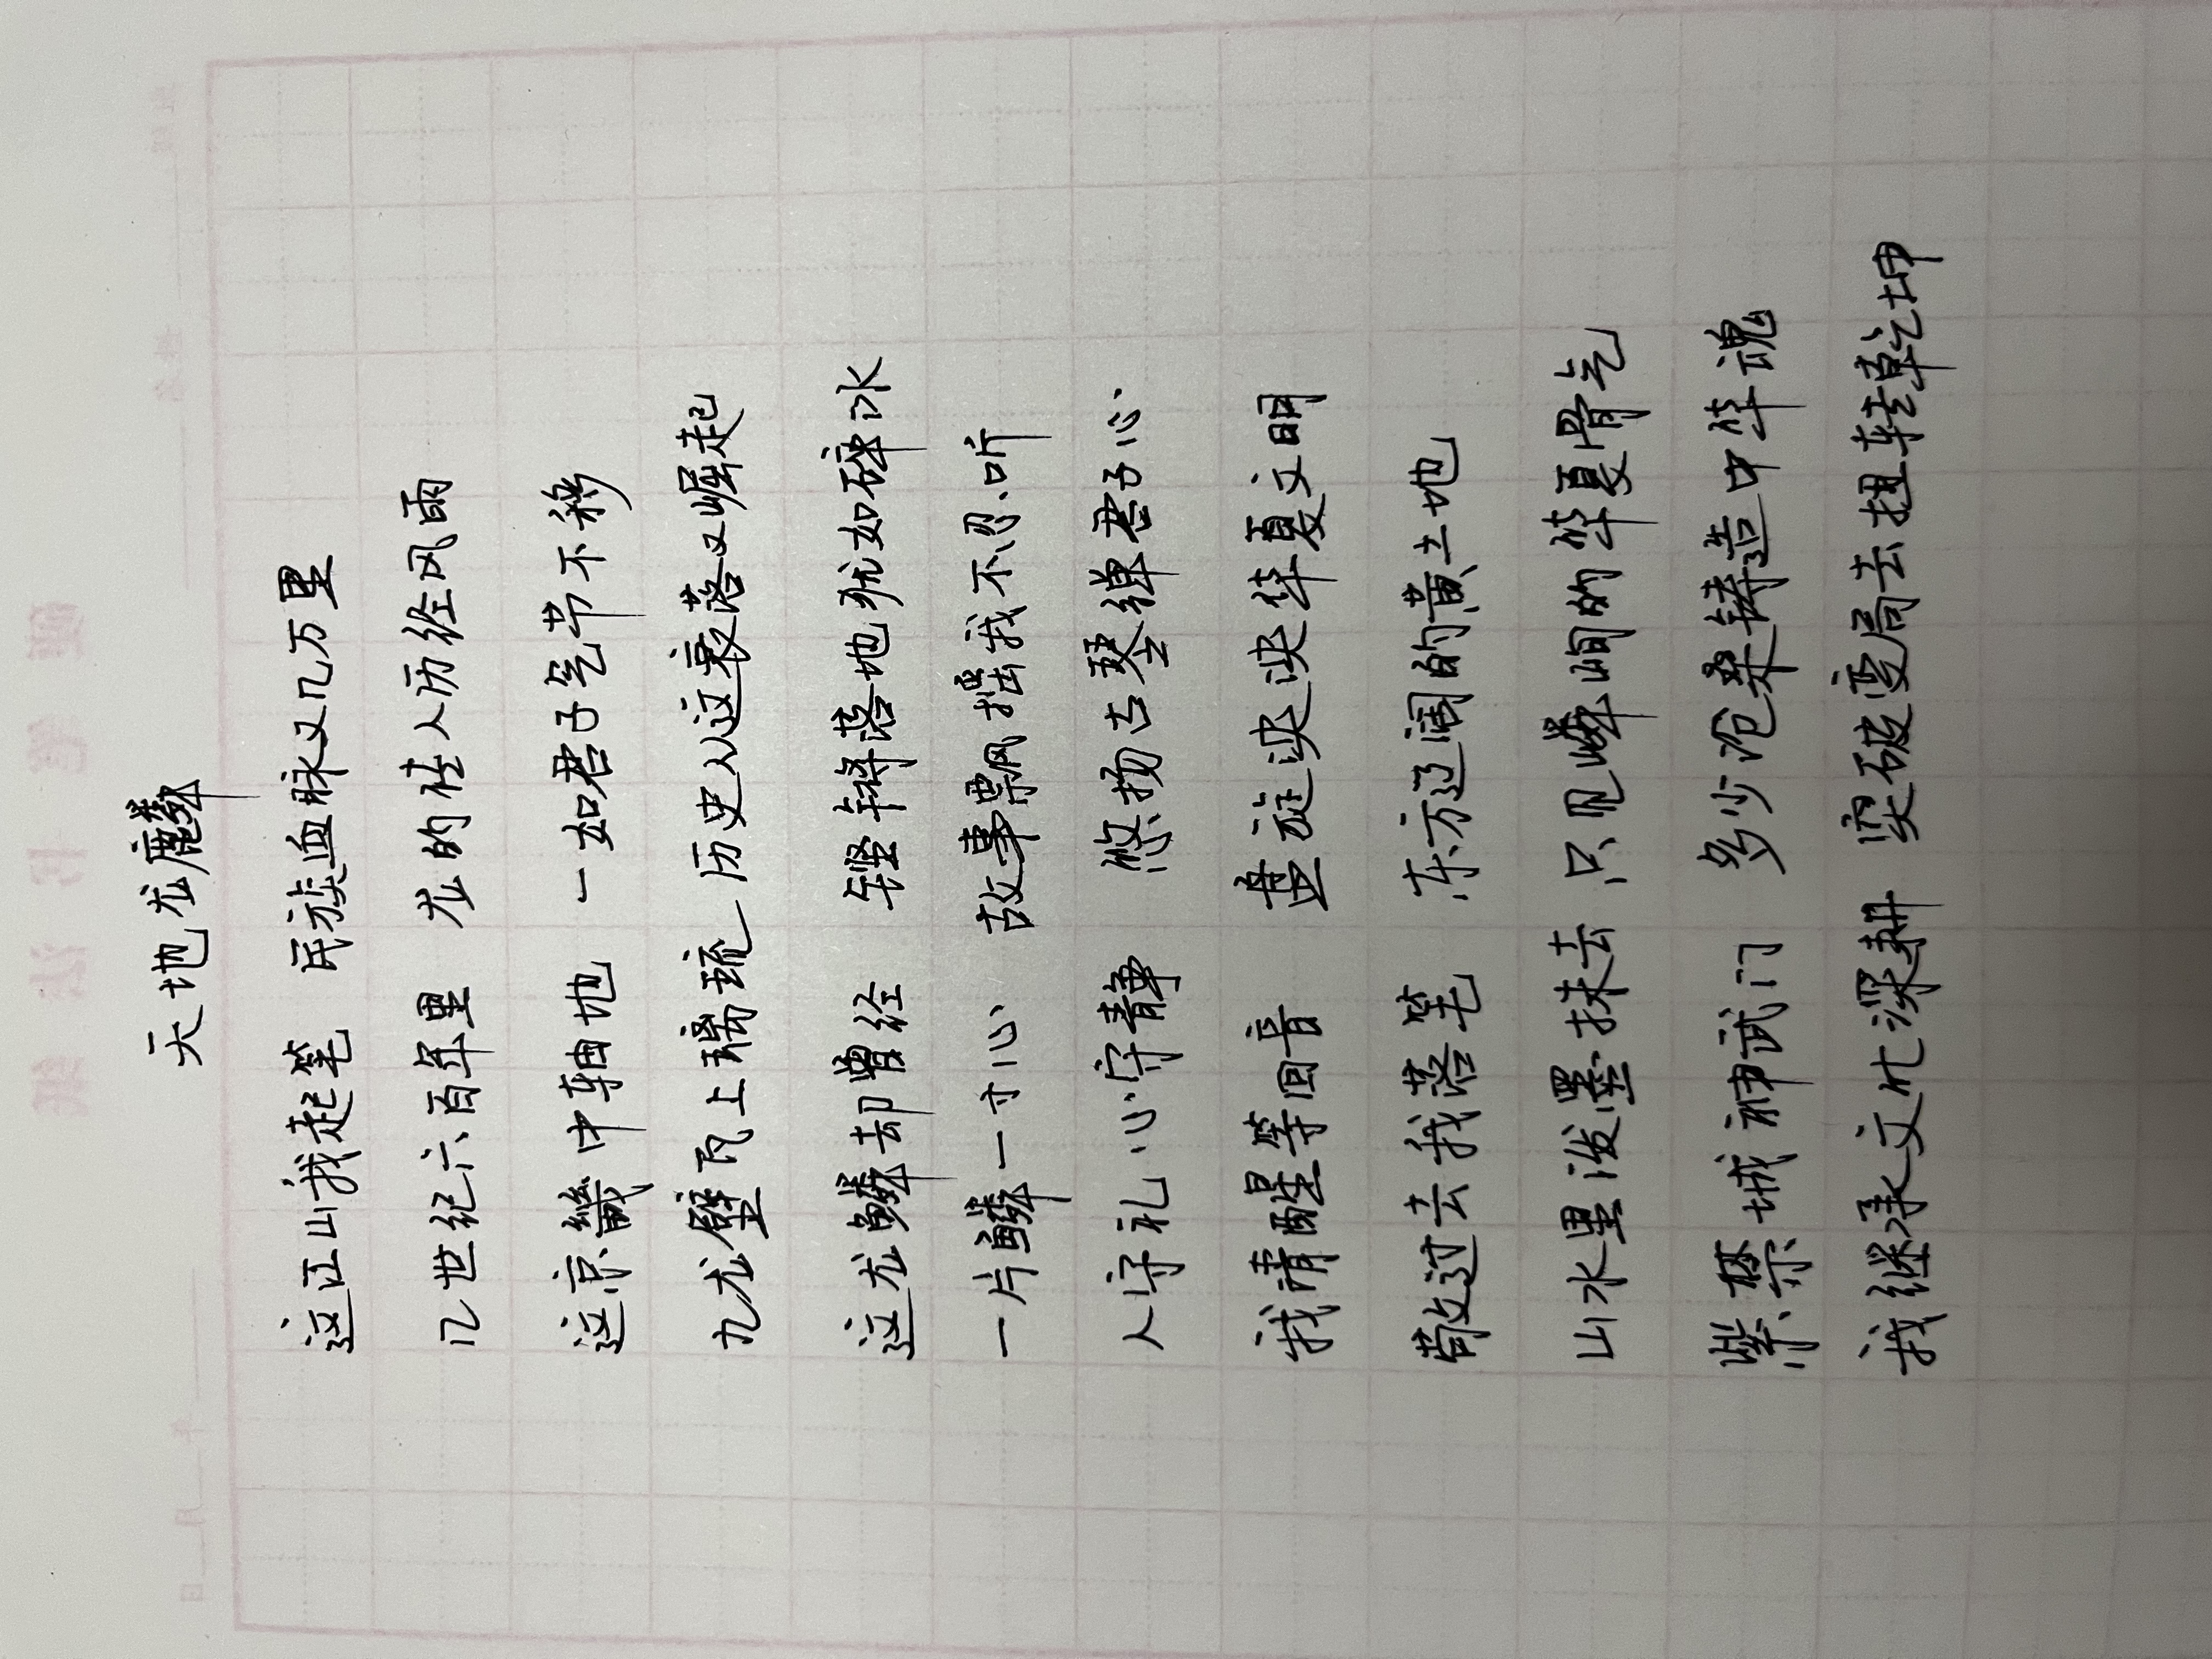 天地龙麟
这江山我起笔 民族血脉又几万里
几世纪六百年里 龙的传人历经风雨
这京畿中轴地 一如君子气节不移
九龙壁瓦上璃琉 历史从这衰落又崛起
这龙鳞却曾经 铿锵落地犹如碎冰
一片鳞一寸心 故事飘风摇我不忍听
人守礼心守静 悠扬古琴弹君子心
我清醒等回音 盘旋泱泱华夏文明
敬过去我落笔 东方辽阔的黄土地
山水里泼墨抹去 只见嶙峋的华夏骨气
紫禁城神武门 多少沧桑铸造中华魂
我继承文化深耕 突破变局去扭转乾坤